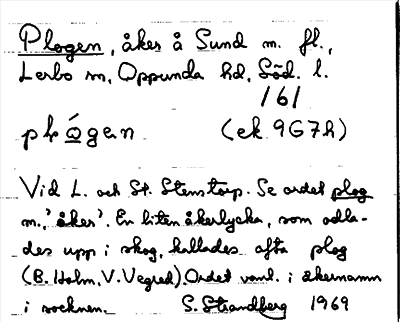 Plogen, åker å Sund m. fl.,
Lerbo sn, Oppunda hd, Söd. l.
/6/
plógen (ek 9G7h)
Vid L. och St. Stenstorp. Se ordet plog
m., 'åker'. En liten åkerlycka, som odla-
des upp i skog, kallades ofta plog
(B. Holm, V. Vegred). Ordet vanl. i åkernamn
i socknen. S. Strandberg 1969